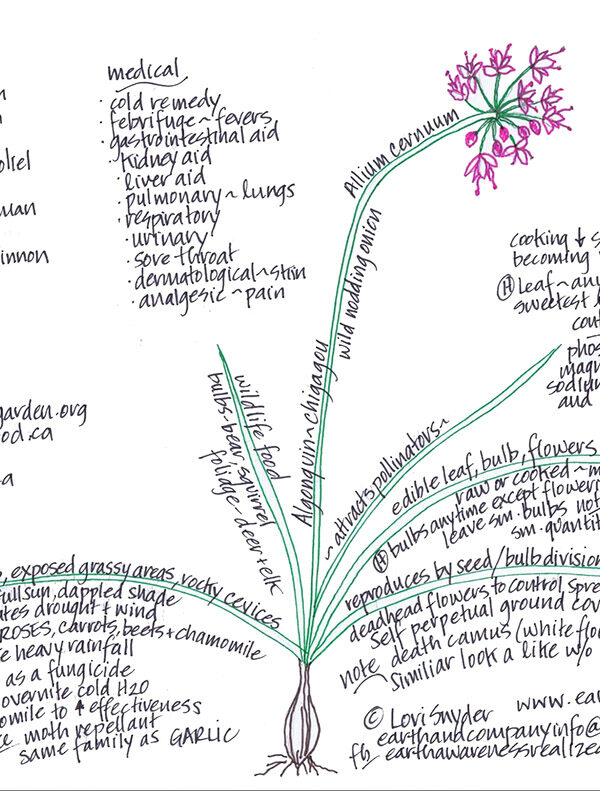 medical
· cold remedy
· febrifuge ~ fevers
· gastrointestinal aid
· kidney aid
· liver aid
· pulmonary ~ lungs
· respiratory
· urinary
· sore throat
· dermatological ~ skin
· analgesic ~ pain
innon
garden.org
od.ca
a
Allium cernuum
wild nodding onion
Algonquin ~ chigagou
wildlife food
bulbs - bear, squirrel
foliage - deer + elk
~ attracts pollinators ~
cooking ↓ s
becoming
Ⓗ Leaf ~ any
sweetest
cont
phos
magn
sodium
and
edible leaf, bulb, flowers
raw or cooked ~ m
Ⓗ bulbs anytime except floweri
leave sm. bulbs not
sm. quantit
reproduces by seed / bulb division
deadhead flowers to control spre
self perpetual ground cov
note death camus (white flo
similiar look a like w/o
, exposed grassy areas, rocky cevices
full sun, dappled shade
ates drought + wind
ROSES, carrots, beets + chamomile
e heavy rainfall
as a fungicide
overnite cold H2O
omile to ↑ effectiveness
ce moth repellant
same family as GARLIC
© Lori Snyder www.ear
earthandcompanyinfo@
fb earthawarenessrealized